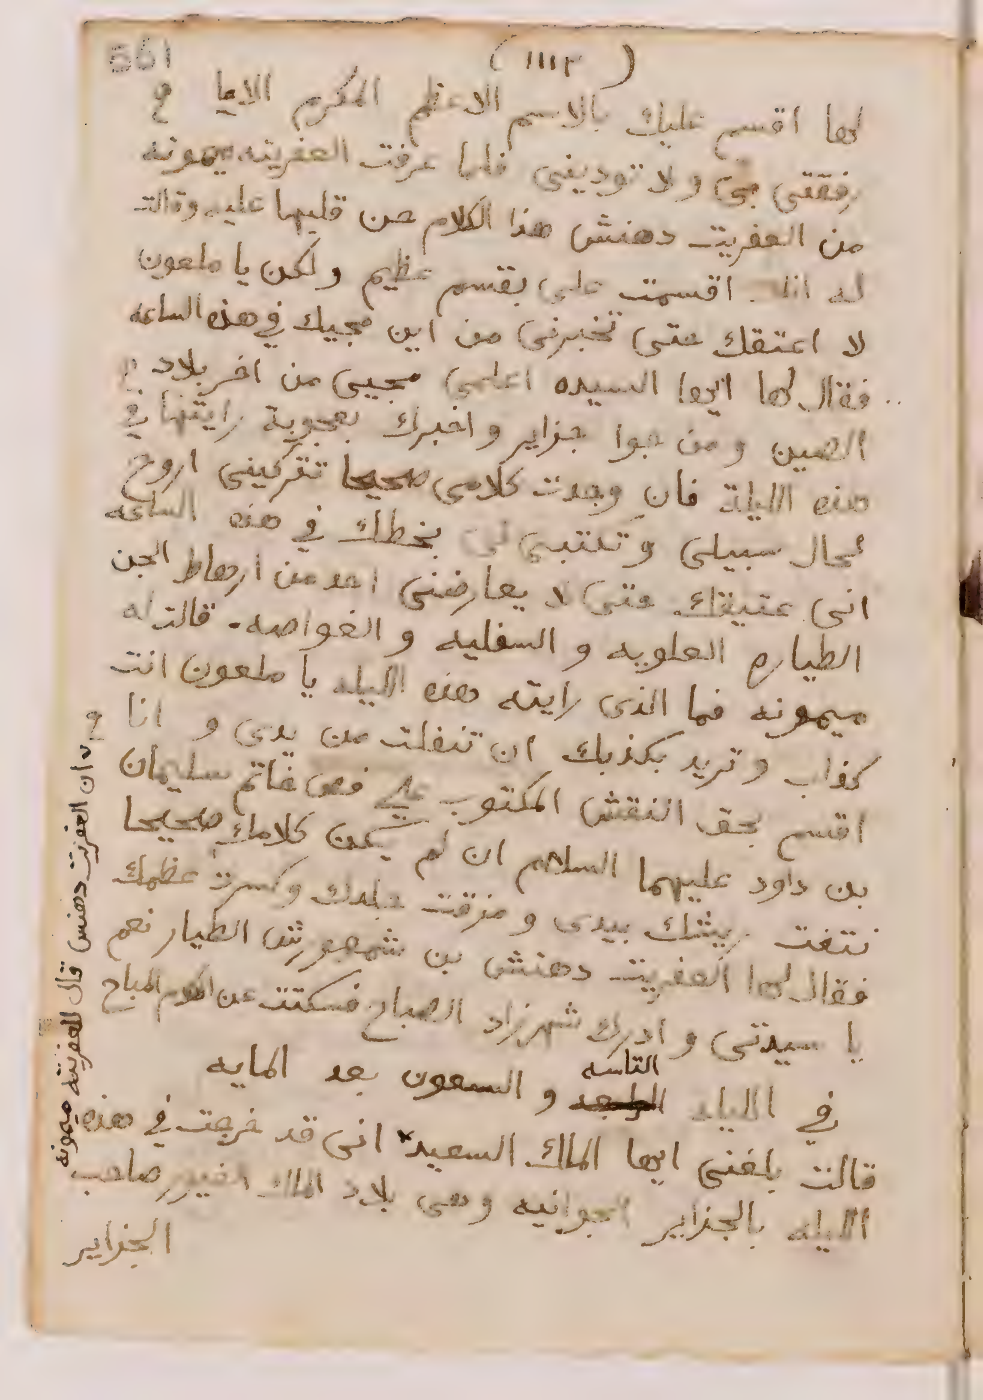 561
(١١١٣)
لها اقسم عليك بالاسم الاعظم المكرم الاما
رفقتي بي ولا توديني فلما عرفت العفريته ميمونه
من العفريت دهنش هذا الكلام حن قلبها عليه وقالت
له انك اقسمت علي بقسم عظيم ولكن يا ملعون
لا اعتقك حتى تخبرني من اين مجيك في هذه الساعه
فقال لها ايها السيده اعلمي مجيي من اخر بلاد
الصين ومن جوا جزاير واخبرك بعجوبة رايتها في
هذه الليلة فان وجدت كلامي صحيحا تتركيني اروح
لحال سبيلي وتكتبي لي بخطك في هذه الساعه
اني عتيقك حتى لا يعارضني احد من ارهاط الجن
الطياره العلويه و السفليه و الغواصه. قالت له
ميمونه فما الذي رايته هذه الليله يا ملعون انت
كذاب وتريد بكذبك ان تنفلت من يدي و انا
اقسم بحق النقش المكتوب علي فص خاتم سليمان
بن داود عليهما السلام ان لم يكن كلامك صحيحا
نتفت ريشك بيدي و مزقت جلدك وكسرت عظمك
فقال لها العفريت دهنش بن شمهورش الطيار نعم
يا سيدتي و ادرك شهرزاد الصباح فسكتت عن الكلام المباح
التاسه
في الليله و السعون بعد المايه
قالت بلغني ايها الملك السعيد اني قد خرجت في هذه
الليله بالجزاير الجوانيه وهي بلاد الملك الغيور صاحب
الجزاير
ان العفريت دهنس قال للعفريته ميمونه